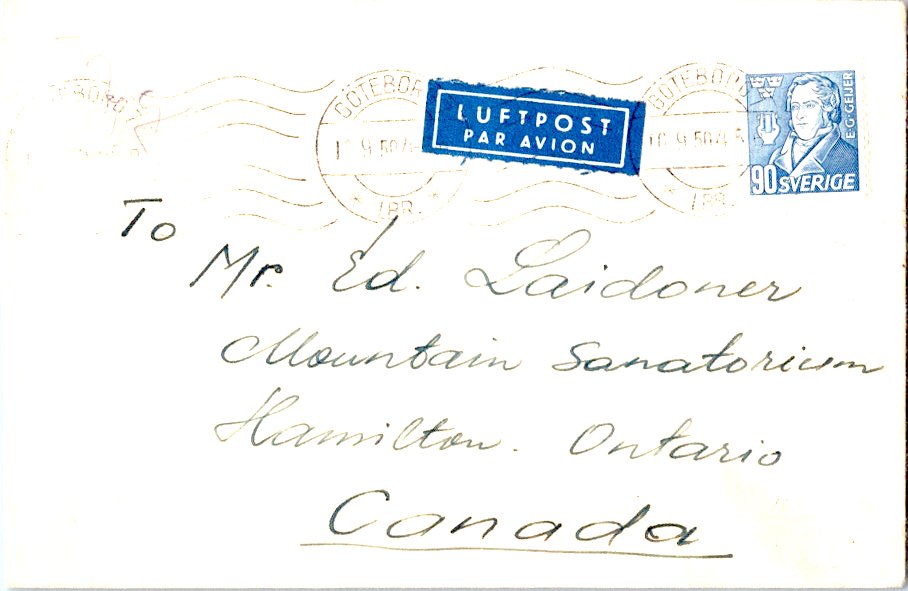 GÖTEBORG
LUFTPOST
PAR AVION
GÖTEBORG
E·G·GEIJER
90 SVERIGE
To
Mr. Ed. Laidoner
Mountain Sanatorium
Hamilton. Ontario
Canada